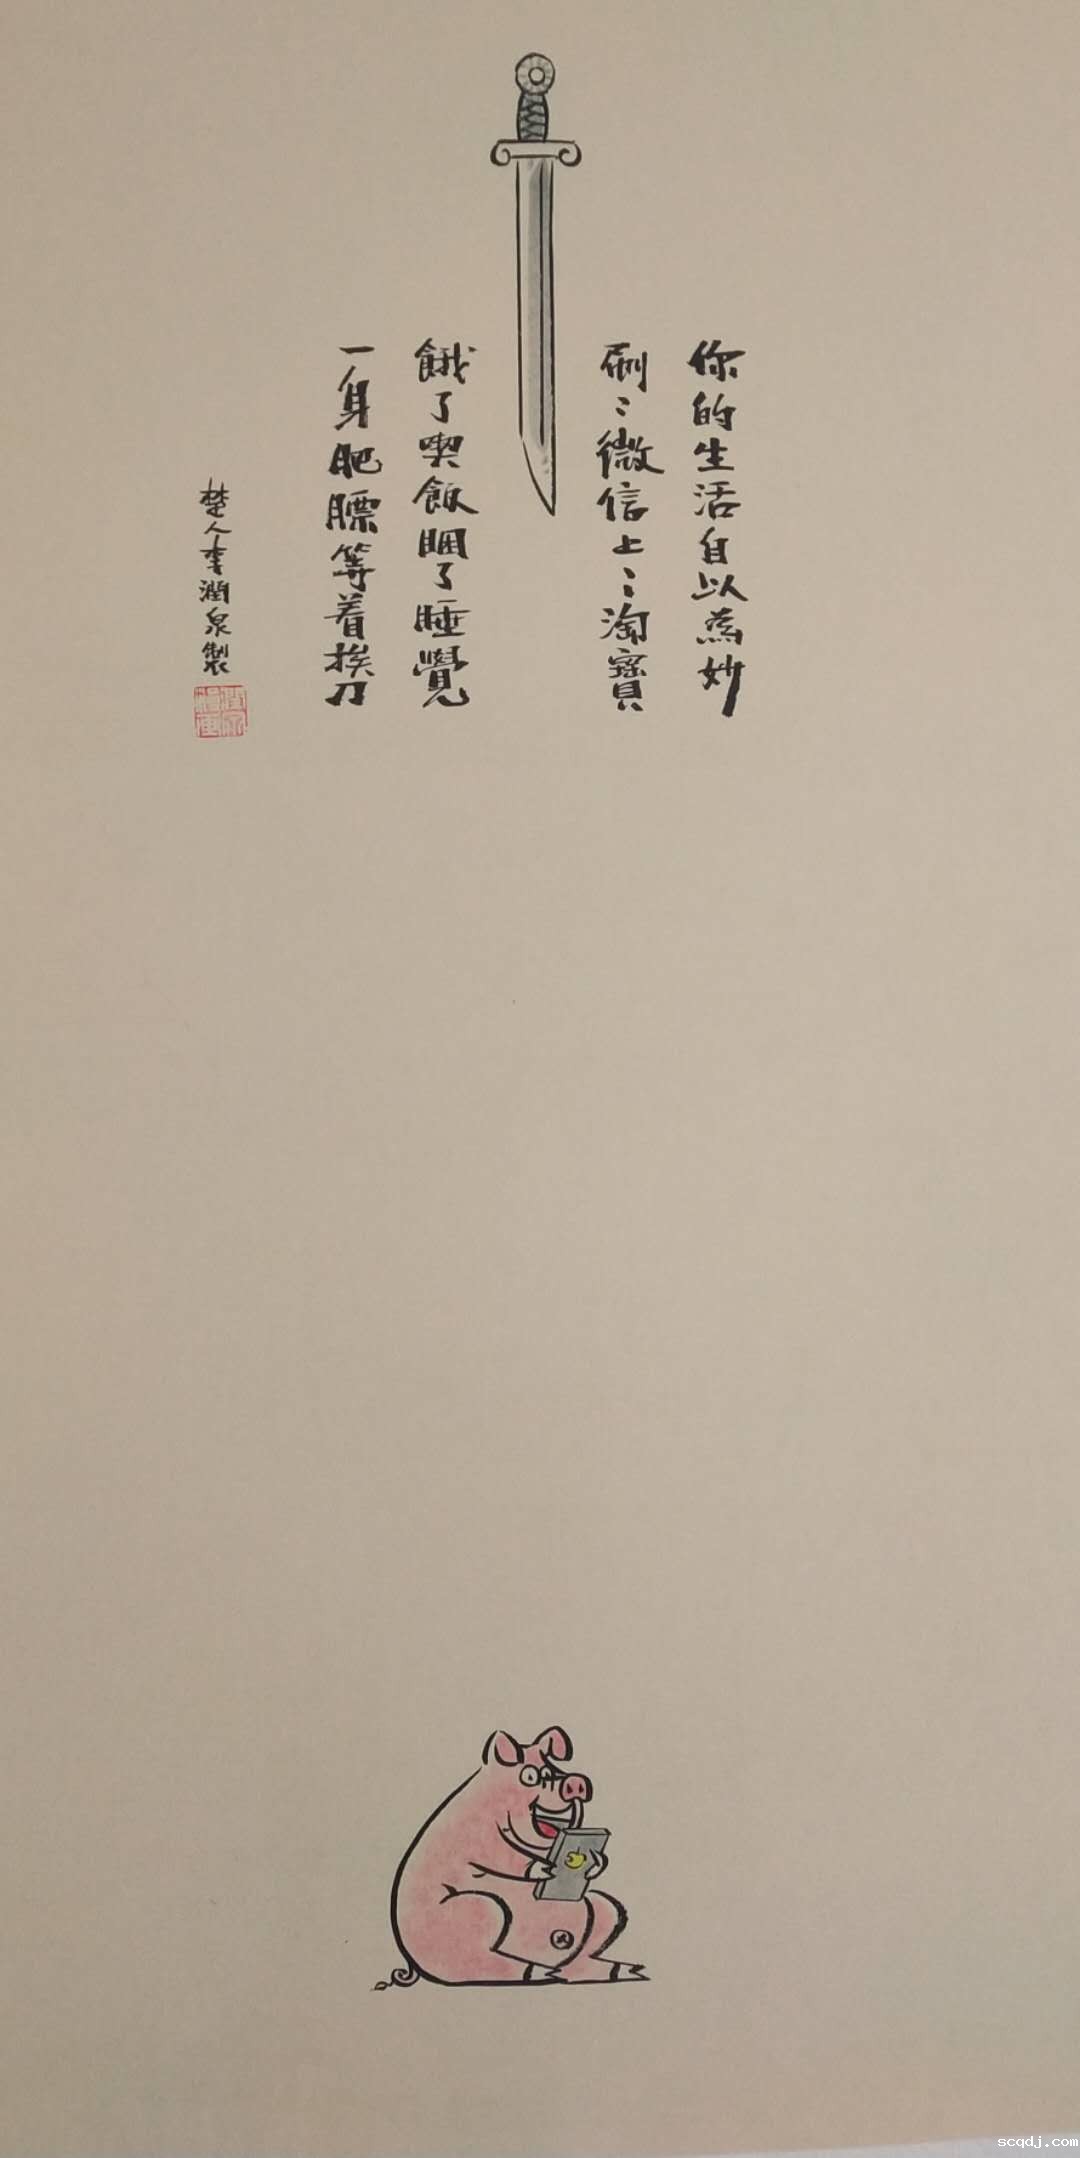 你的生活自以為妙
刷〻微信上〻淘寶
餓了喫飯睏了睡覺
一身肥膘等着挨刀
楚人李潤泉製
scqdj.com